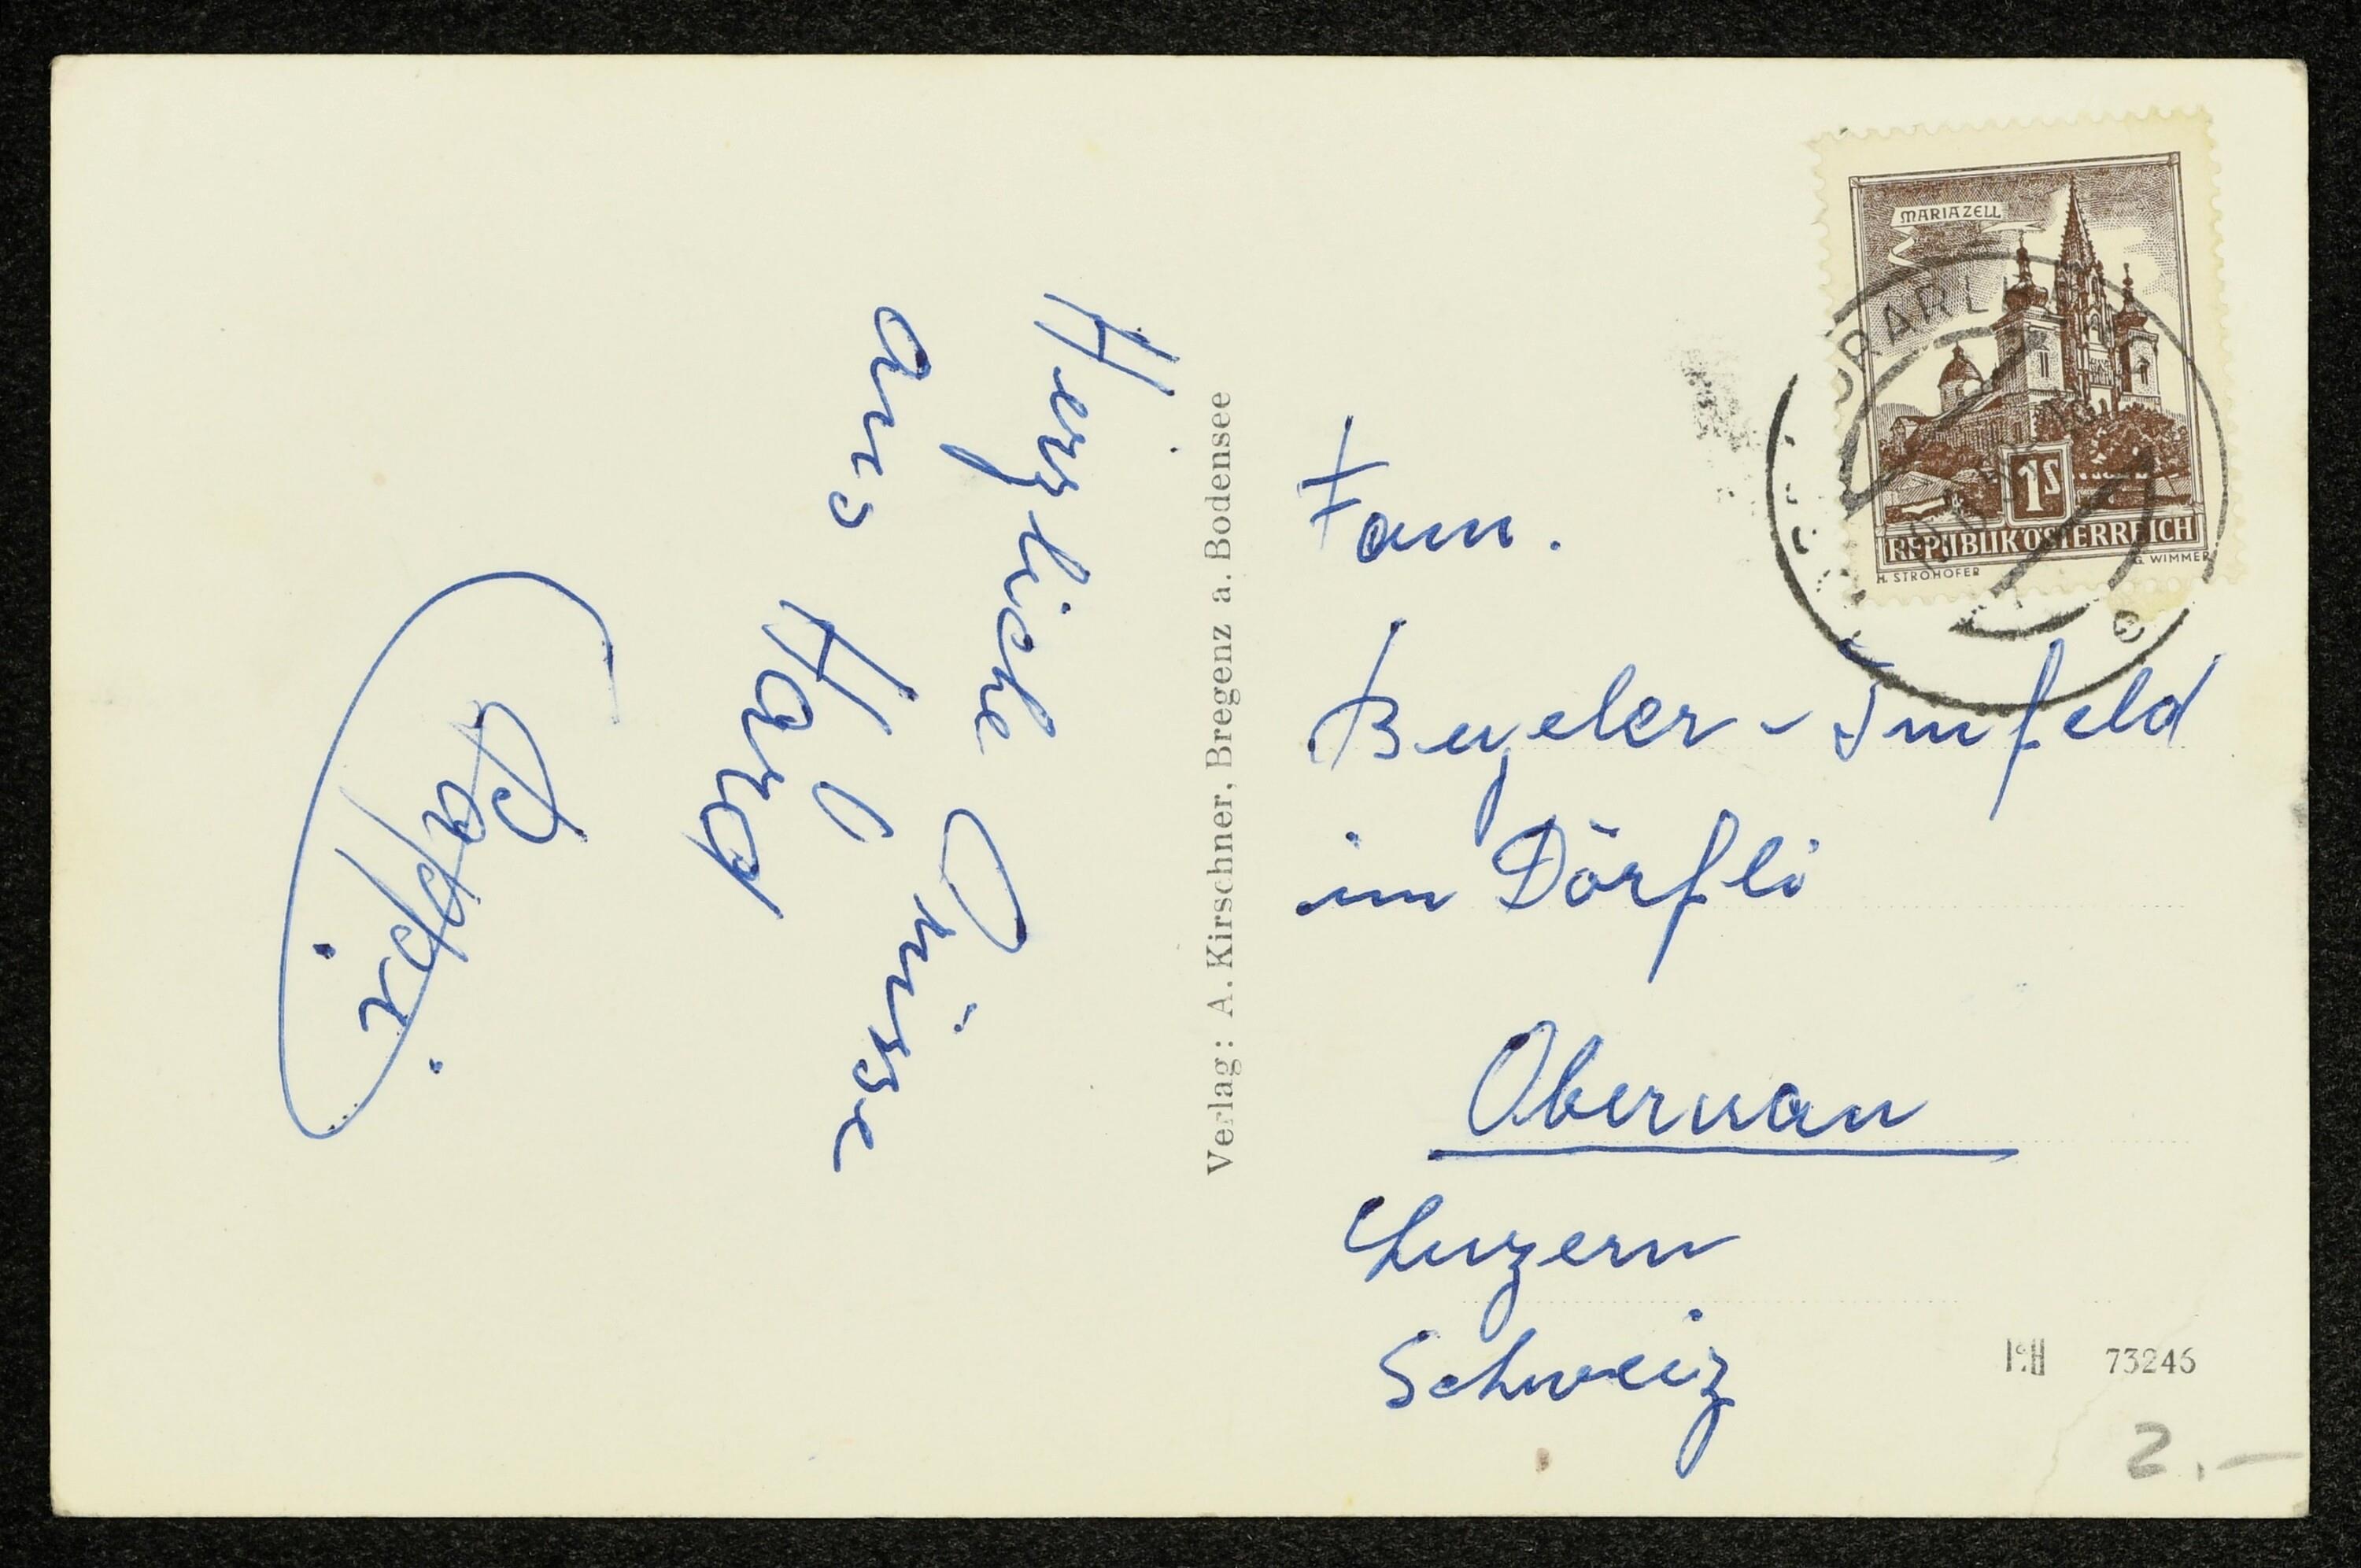 Herzliche Grüsse
aus Hard
Pappi
Verlag: A. Kirschner, Bregenz a. Bodensee
MARIAZELL
1S
REPUBLIK ÖSTERREICH
H. STROHOFER
G. WIMMER
Fam.
Beyeler - Imfeld
im Dörfli
Obernau
Luzern
Schweiz
73246
2.-